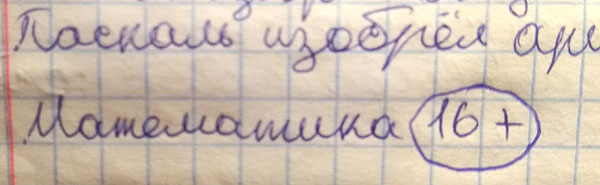 Паскаль изобрёл
Математика 16+